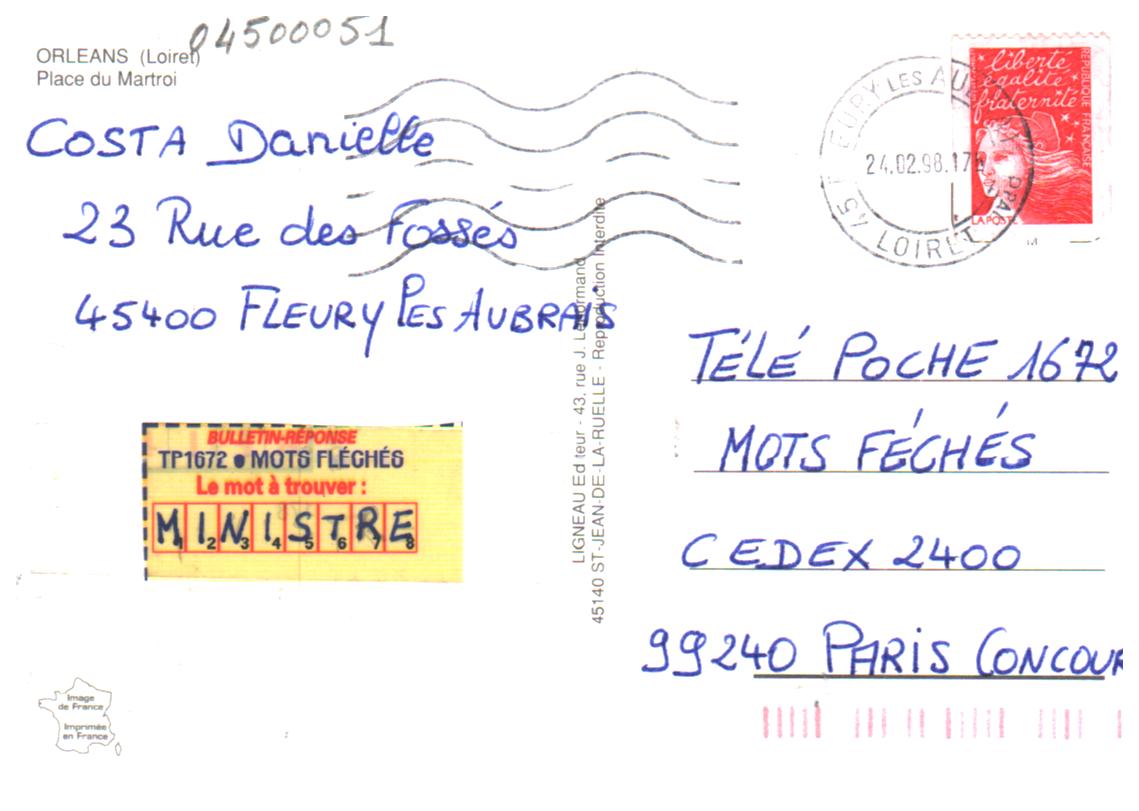 04500051
ORLEANS (Loiret)
Place du Martroi
COSTA Danielle
23 Rue des Fossés
45400 FLEURY les AUBRAIS
BULLETIN-RÉPONSE
TP1672 • MOTS FLÉCHÉS
Le mot à trouver :
MINISTRE
1 2 3 4 5 6 7 8
Image
de France
Imprimée
en France
LIGNEAU Ed teur - 43, rue J. Lenormand
45140 ST-JEAN-DE-LA-RUELLE - Reproduction Interdite
FLEURY LES AU
24.02.98.17H
45 LOIRET
PPAL
liberté
égalité
fraternité
RÉPUBLIQUE FRANÇAISE
LA POSTE
TÉLÉ POCHE 1672
MOTS FÉCHÉS
CEDEX 2400
99240 PARIS CONCOUR